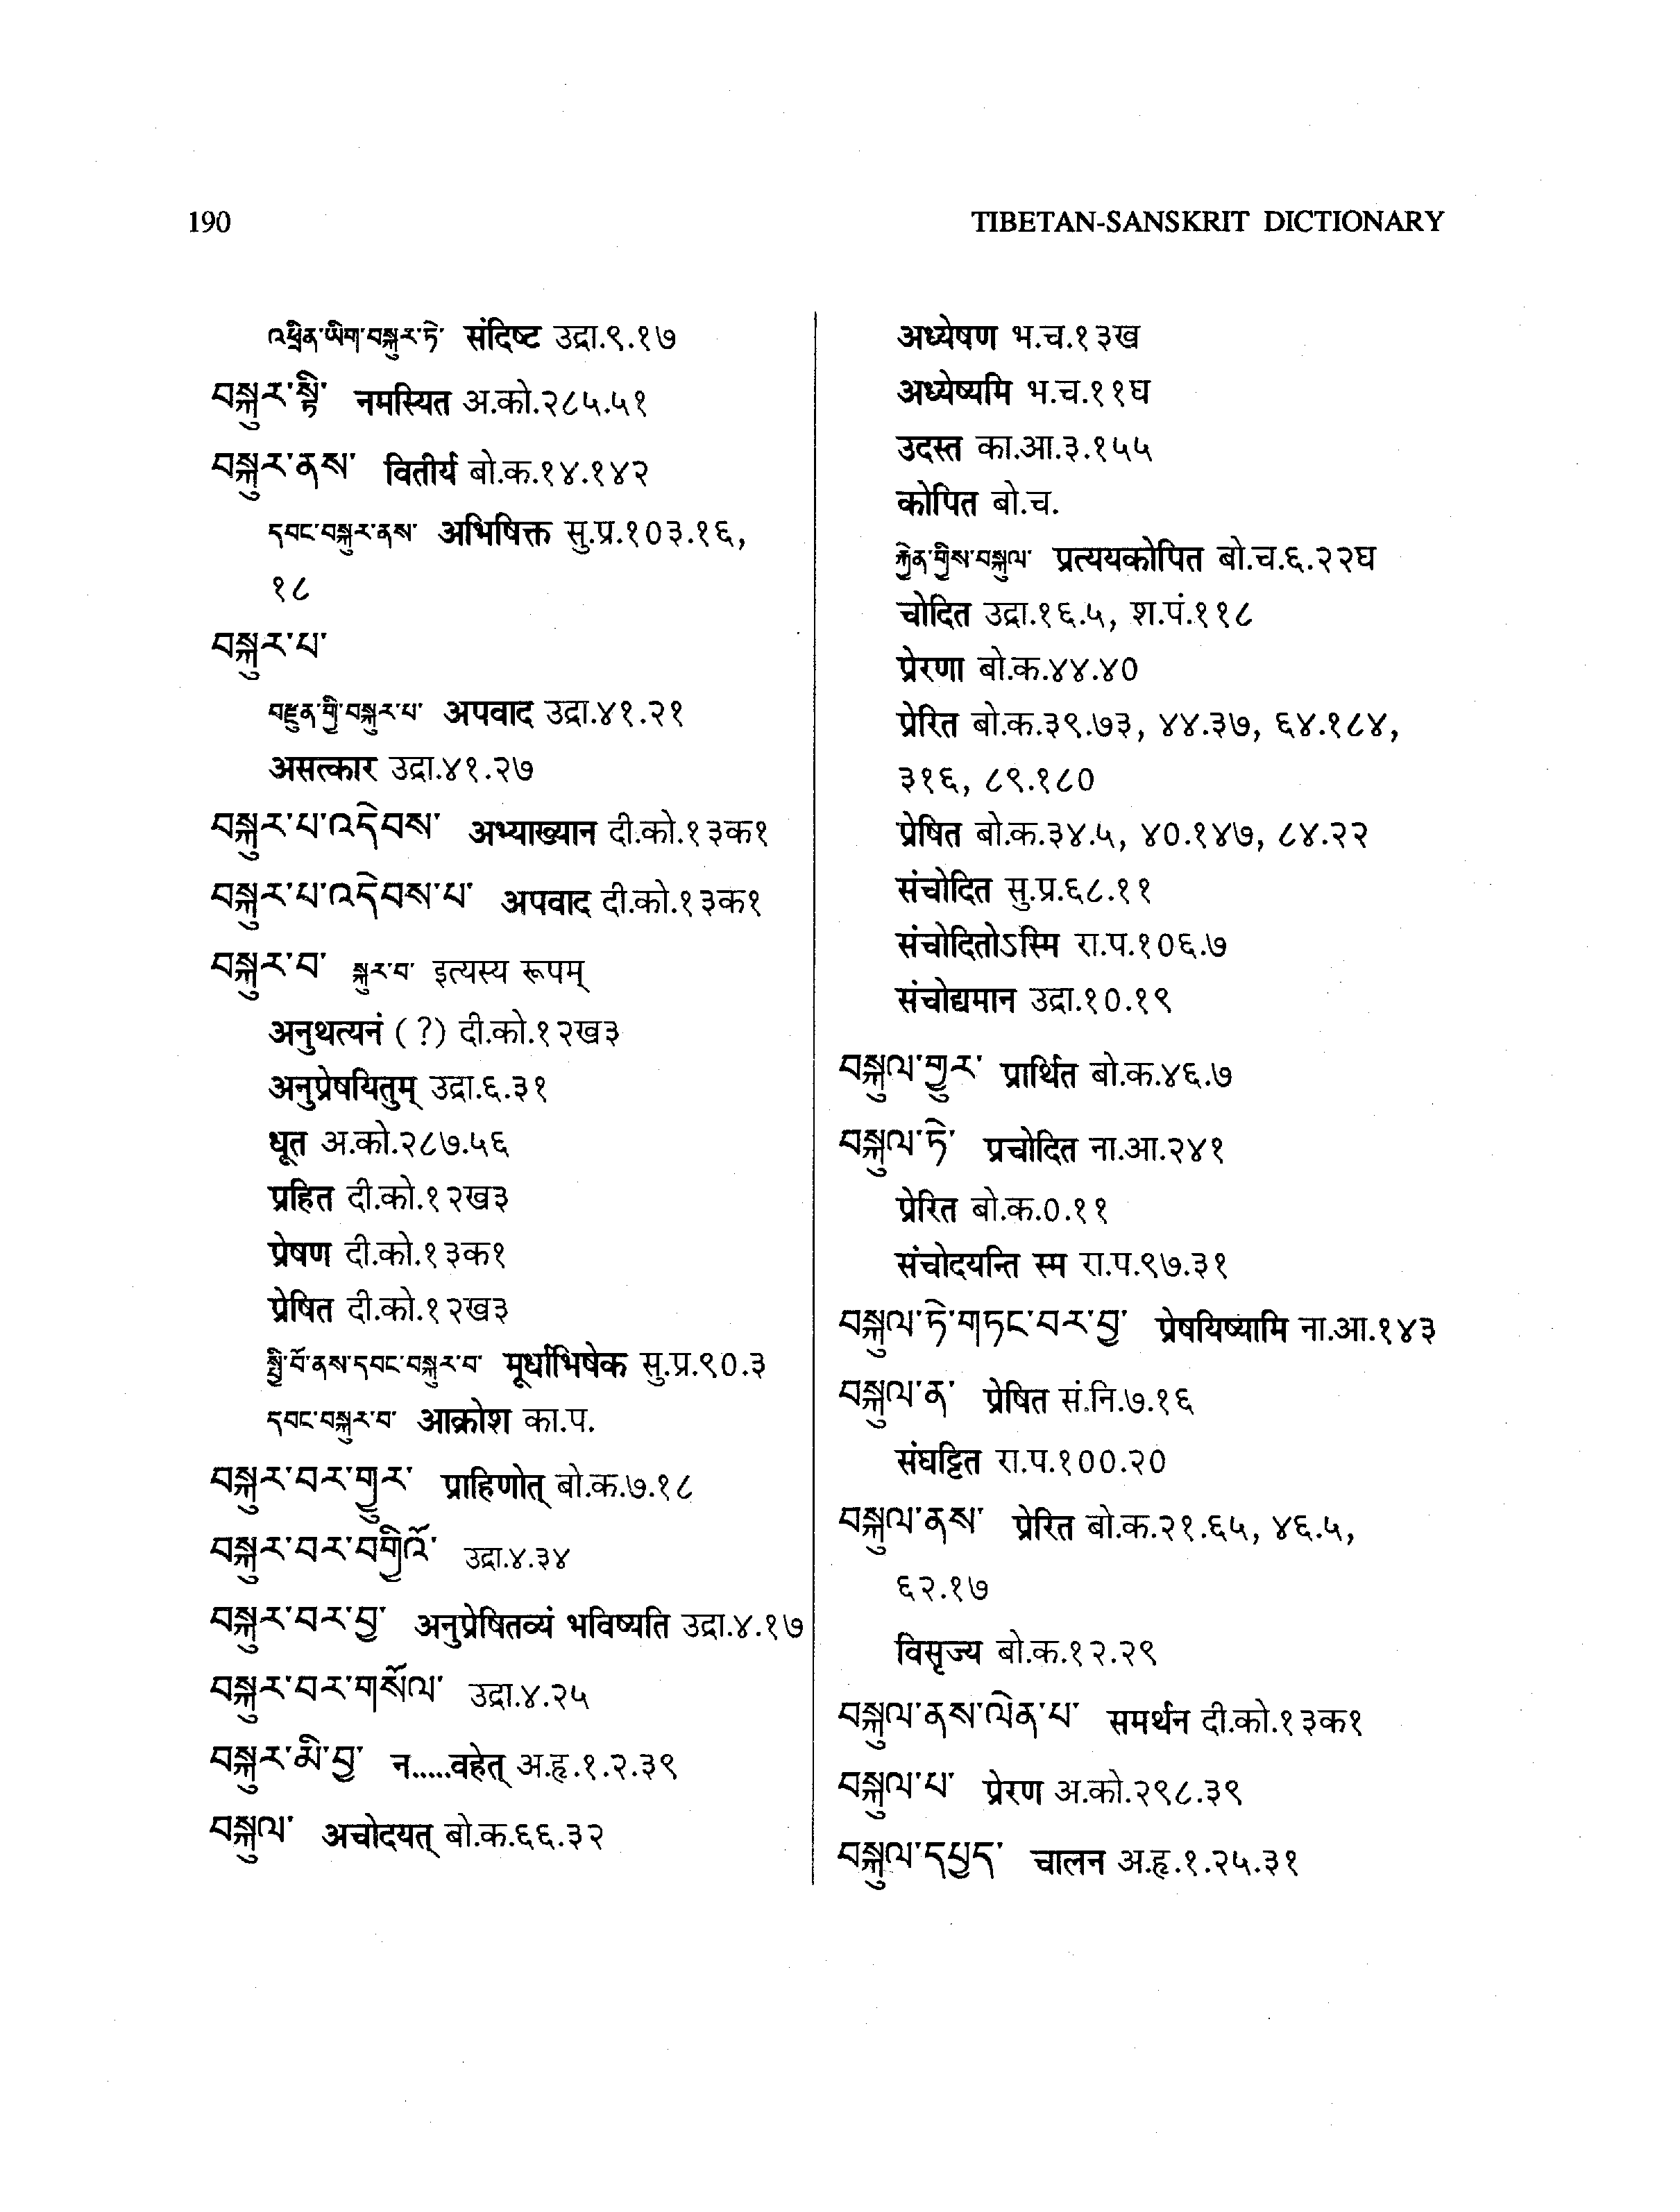 190
TIBETAN-SANSKRIT DICTIONARY
འཕྲིན་ཡིག་བསྐུར་ཏེ་ संदिष्ट उद्रा.९.१७
བསྐུར་སྟི་ नमस्यित अ.को.२८५.५१
བསྐུར་ནས་ वितीर्य बो.क.१४.१४२
དབང་བསྐུར་ནས་ अभिषिक्त सु.प्र.१०३.१६,
१८
བསྐུར་པ་
བརྫུན་གྱི་བསྐུར་པ་ अपवाद उद्रा.४१.२१
असत्कार उद्रा.४१.२७
བསྐུར་པ་འདེབས་ अभ्याख्यान दी.को.१३क१
བསྐུར་པ་འདེབས་པ་ अपवाद दी.को.१३क१
བསྐུར་བ་ སྐུར་བ་ इत्यस्य रूपम्
अनुथत्यनं (?) दी.को.१२ख३
अनुप्रेषयितुम् उद्रा.६.३१
धूत अ.को.२८७.५६
प्रहित दी.को.१२ख३
प्रेषण दी.को.१३क१
प्रेषित दी.को.१२ख३
སྤྱི་བོ་ནས་དབང་བསྐུར་བ་ मूर्धाभिषेक सु.प्र.९०.३
དབང་བསྐུར་བ་ आक्रोश का.प.
བསྐུར་བར་གྱུར་ प्राहिणोत् बो.क.७.१८
བསྐུར་བར་བགྱིའོ་ उद्रा.४.३४
བསྐུར་བར་བྱ་ अनुप्रेषितव्यं भविष्यति उद्रा.४.१७
བསྐུར་བར་གསོལ་ उद्रा.४.२५
བསྐུར་མི་བྱ་ न.....वहेत् अ.हृ.१.२.३९
བསྐུལ་ अचोदयत् बो.क.६६.३२
अध्येषण भ.च.१३ख
अध्येष्यमि भ.च.११घ
उदस्त का.आ.३.१५५
कोपित बो.च.
རྐྱེན་གྱིས་བསྐུལ་ प्रत्ययकोपित बो.च.६.२२घ
चोदित उद्रा.१६.५, श.पं.११८
प्रेरणा बो.क.४४.४०
प्रेरित बो.क.३९.७३, ४४.३७, ६४.१८४,
३१६, ८९.१८०
प्रेषित बो.क.३४.५, ४०.१४७, ८४.२२
संचोदित सु.प्र.६८.११
संचोदितोऽस्मि रा.प.१०६.७
संचोद्यमान उद्रा.१०.१९
བསྐུལ་གྱུར་ प्रार्थित बो.क.४६.७
བསྐུལ་ཏེ་ प्रचोदित ना.आ.२४१
प्रेरित बो.क.०.११
संचोदयन्ति स्म रा.प.९७.३१
བསྐུལ་ཏེ་གཏང་བར་བྱ་ प्रेषयिष्यामि ना.आ.१४३
བསྐུལ་ན་ प्रेषित सं.नि.७.१६
संघट्टित रा.प.१००.२०
བསྐུལ་ནས་ प्रेरित बो.क.२१.६५, ४६.५,
६२.१७
विसृज्य बो.क.१२.२९
བསྐུལ་ནས་ལེན་པ་ समर्थन दी.को.१३क१
བསྐུལ་པ་ प्रेरण अ.को.२९८.३९
བསྐུལ་དཔྱད་ चालन अ.हृ.१.२५.३१